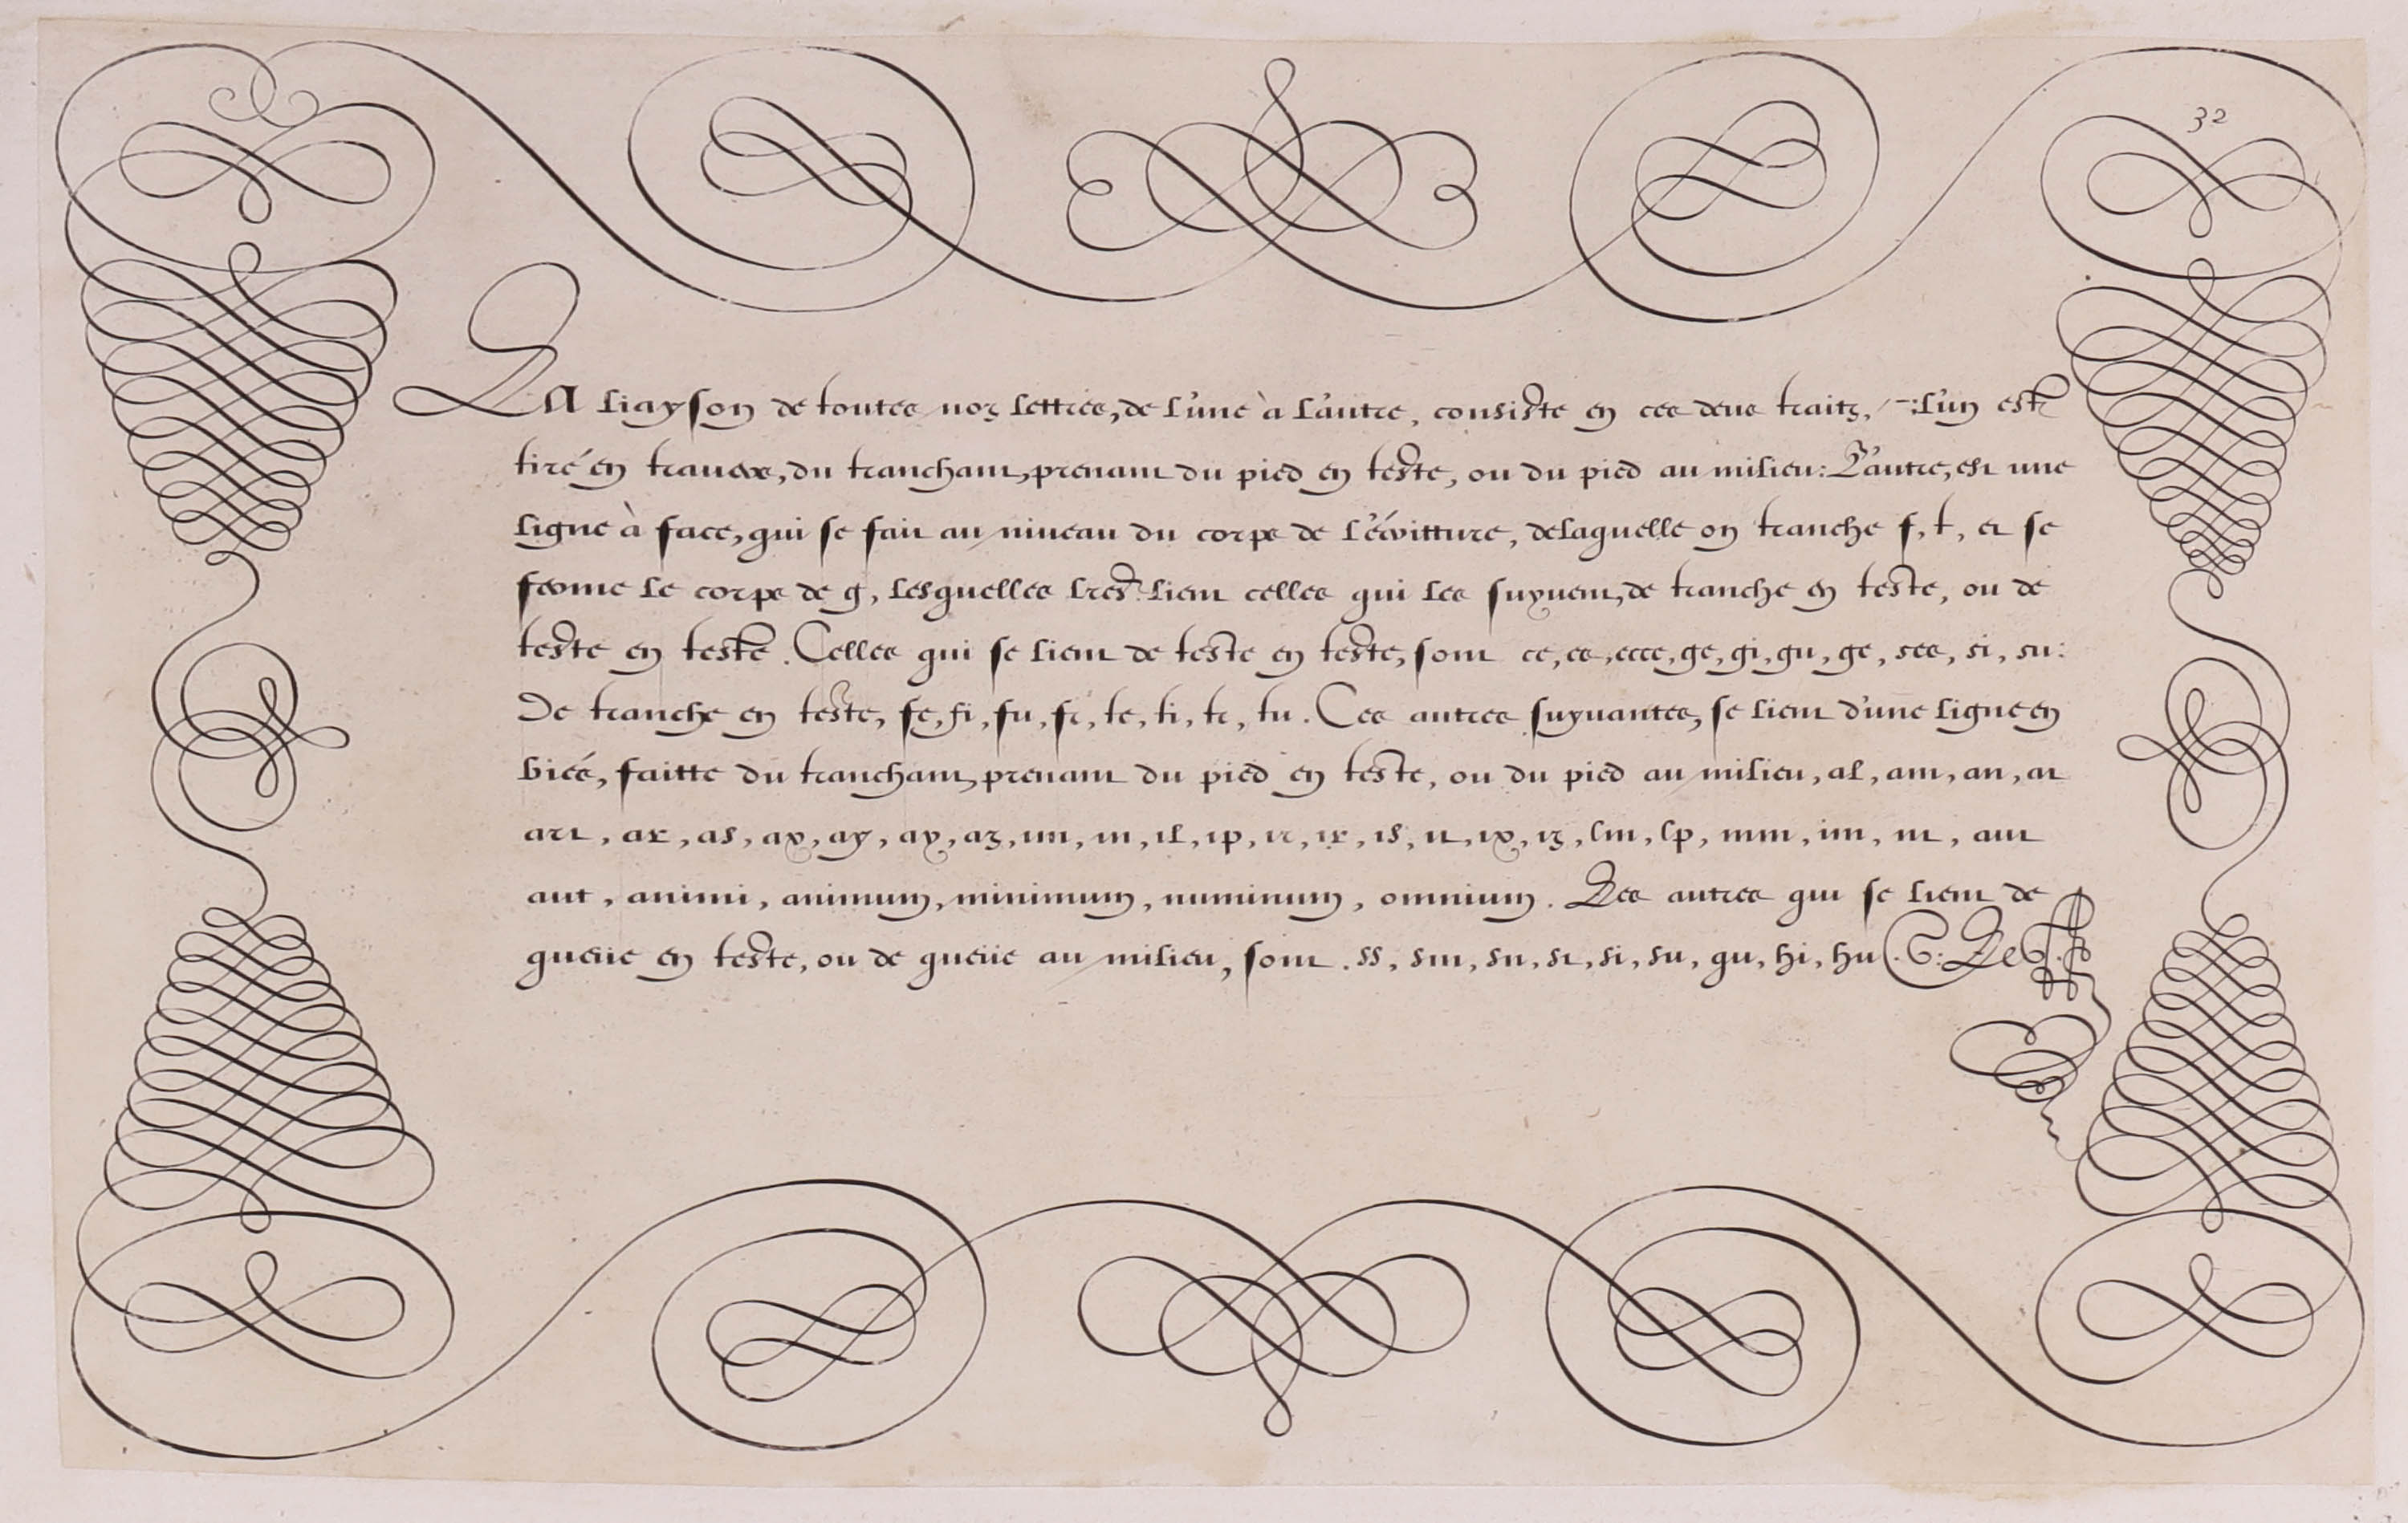 32
LA liayson de toutes noz lettres, de l'une à l'autre, consiste en ces deus traitz, ⸍ – : l'un est
tiré en travers, du tranchant, prenant du pied en teste, ou du pied au milieu: L'autre, est une
ligne à face, qui se fait au niveau du corps de l'écvitture, de laquelle on tranche f, t, et se
forme le corps de g, lesquelles lres lient celles qui les suyvent, de tranche en teste, ou de
teste en teste. Celles qui se lient de teste en teste, sont ce, es, ecce, ge, gi, gu, ge, ses, si, su:
De tranche en teste, fe, fi, fu, fr, te, ti, tr, tu. Ces autres suyvantes, se lient d'une ligne en
biés, faitte du tranchant, prenant du pied en teste, ou du pied au milieu, al, am, an, ar
art, ar, as, ax, ay, ay, az, im, in, il, ip, ir, ir, is, it, ix, iz, lm, lp, mm, im, ni, am
aut, animi, animum, minimum, numinum, omnium. Les autres qui se lient de
queüe en teste, ou de queüe au milieu, sont. ss, sm, sn, sr, si, su, gu, hi, hu. G: Le G.